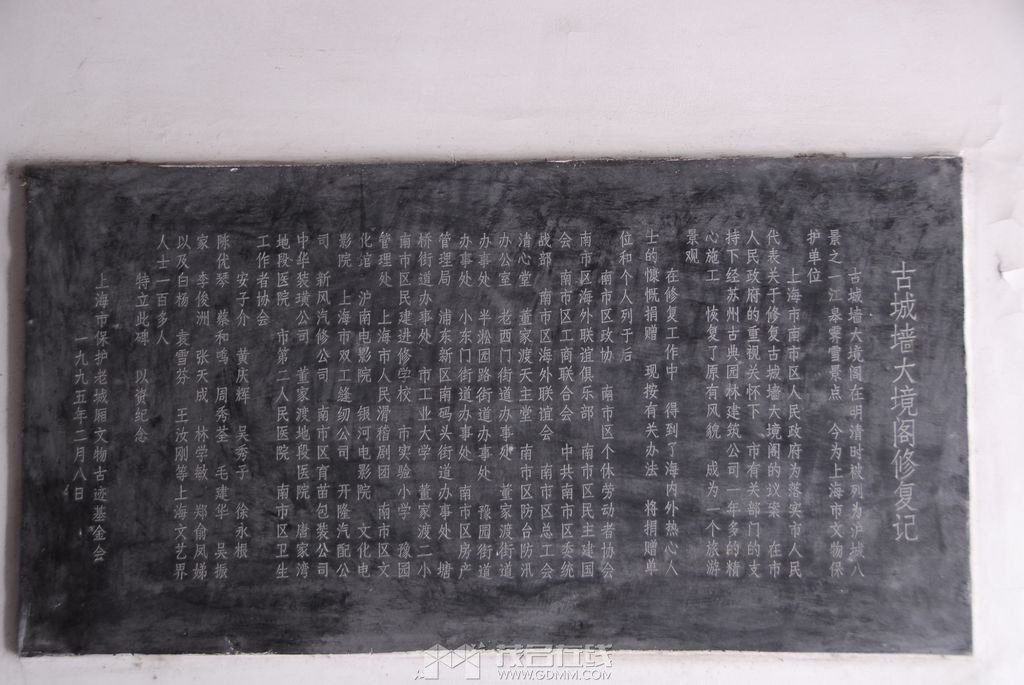 古城墙大境阁修复记
古城墙大境阁在明清时被列为沪城八
景之一 江皋霁雪景点 今为上海市文物保
护单位
上海市南市区人民政府为落实市人民
代表关于修复古城墙大境阁的议案 在市
人民政府的重视关怀下 市有关部门的支
持下经苏州古典园林建筑公司一年多的精
心施工 恢复了原有风貌 成为一个旅游
景观
在修复工作中 得到了海内外热心人
士的慷慨捐赠 现按有关办法 将捐赠单
位和个人列于后
南市区政协 南市区个体劳动者协会
南市区海外联谊俱乐部 南市区民主建国
会 南市区工商联合会 中共南市区委统
战部 南市区海外联谊会 南市区总工会
清心堂 董家渡天主堂 南市区防台防汛
办公室 老西门街道办事处 董家渡街道
办事处 半淞园路街道办事处 豫园街道
办事处 小东门街道办事处 南市区房产
管理局 浦东新区南码头街道办事处 塘
桥街道办事处 市工业大学 董家渡二小
南市区民建进修学校 市实验小学 豫园
管理处 上海市人民滑稽剧团 南市区文
化馆 沪南电影院 银河电影院 文化电
影院 上海市双工缝纫公司 开隆汽配公
司 新风汽修公司 南市区育苗包装公司
中华装璜公司 董家渡地段医院 唐家湾
地段医院 市第二人民医院 南市区卫生
工作者协会
安子介 黄庆辉 吴秀子 徐永根
陈优琴 蔡和鸣 周秀荃 毛建华 吴振
家 李俊洲 张天成 林学敏 郑俞凤娣
以及白杨 袁雪芬 王汝刚等上海文艺界
人士一百多人
特立此碑 以资纪念
上海市保护老城厢文物古迹基金会
一九九五年二月八日
茂名在线
WWW.GDMM.COM